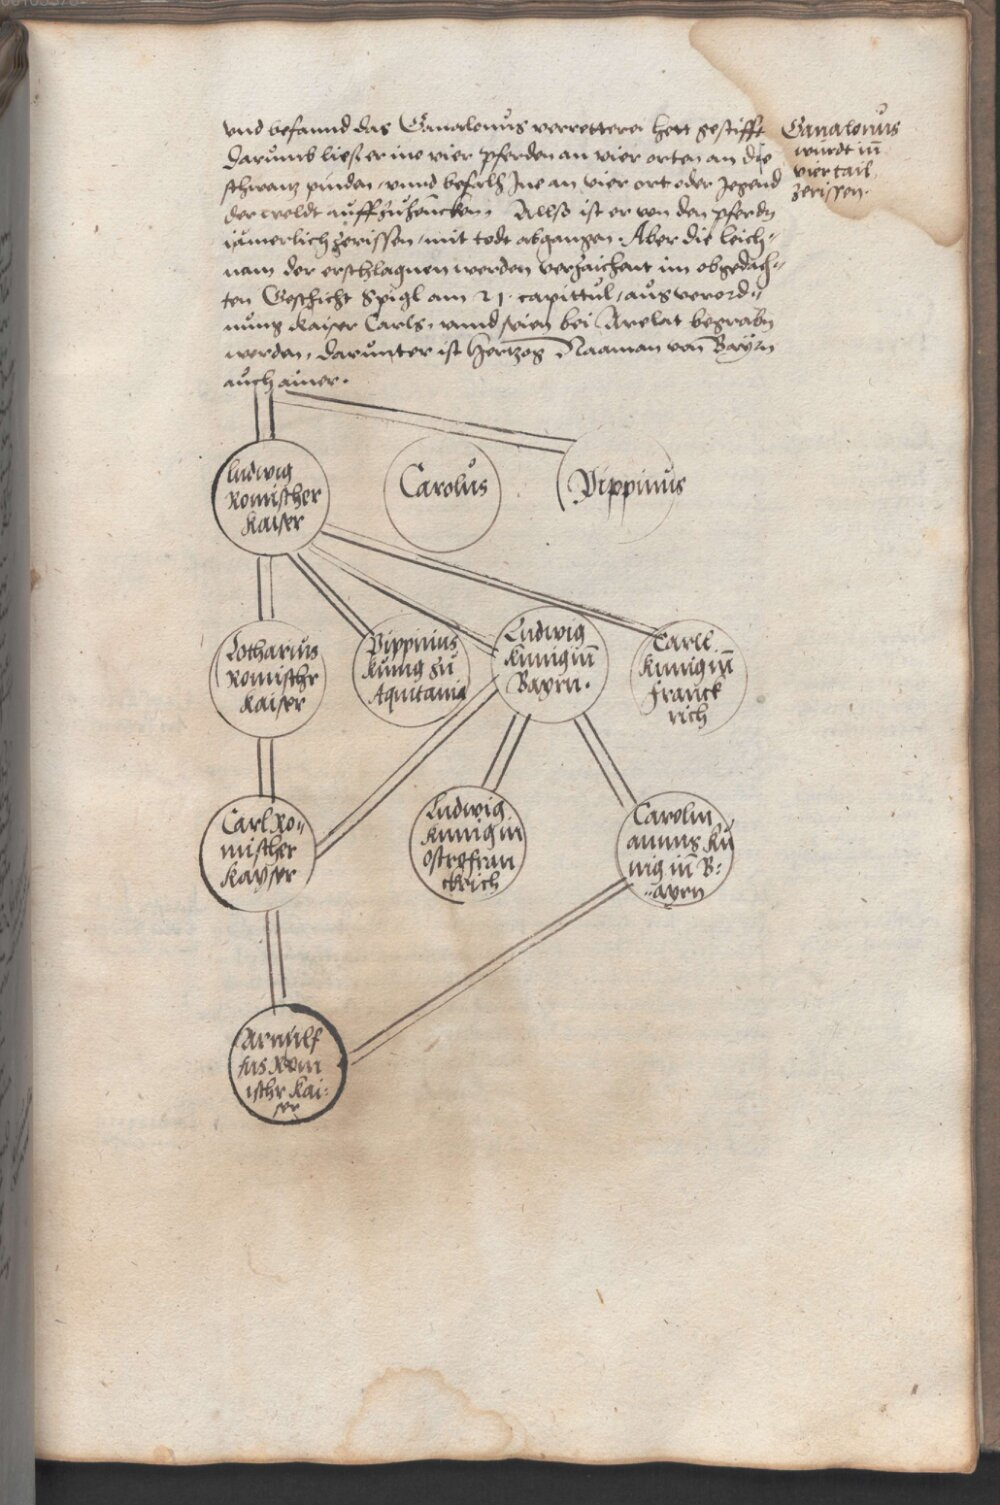 vnd befannd das Ganalonus verretterei hett gestifft
Darumb ließ er ine vier pferden an vier orten an die
schwantz pinden, vnnd befalh Ine an vier ort oder Jegend
der weldt auffzuhencken, Allso ist er von den pferdn
jämerlich zerissen, mit todt abgangen. Aber die leich-
nam der erschlagnen werden verzaichent im obgedach-
ten Geschicht Spigl am 21. capittul, aus verord-
nung Kaiser Carls, vnnd seien bei Arelat begrabn
worden, darunter ist Hertzog Naaman von Bayrn
auch ainer.
Ganalonus
wurdt inn
vier tail
zerissen.
Ludwig
Romischer
Kaiser
Carolus
Pippinus
Lotharius
Romischr
Kaiser
Pippinus
Kunig zu
Aquitania
Ludwig
Kunig inn
Bayrn.
Carll
Kunig inn
Franck
rich
Carl Ro-
mischer
Kayser
Ludwig
Kunig in
Ostrefran
ckrich
Carolm
annus Ku
nig inn B:
-ayrn
Arnulf
fus Rom
ischr Kai:
ser